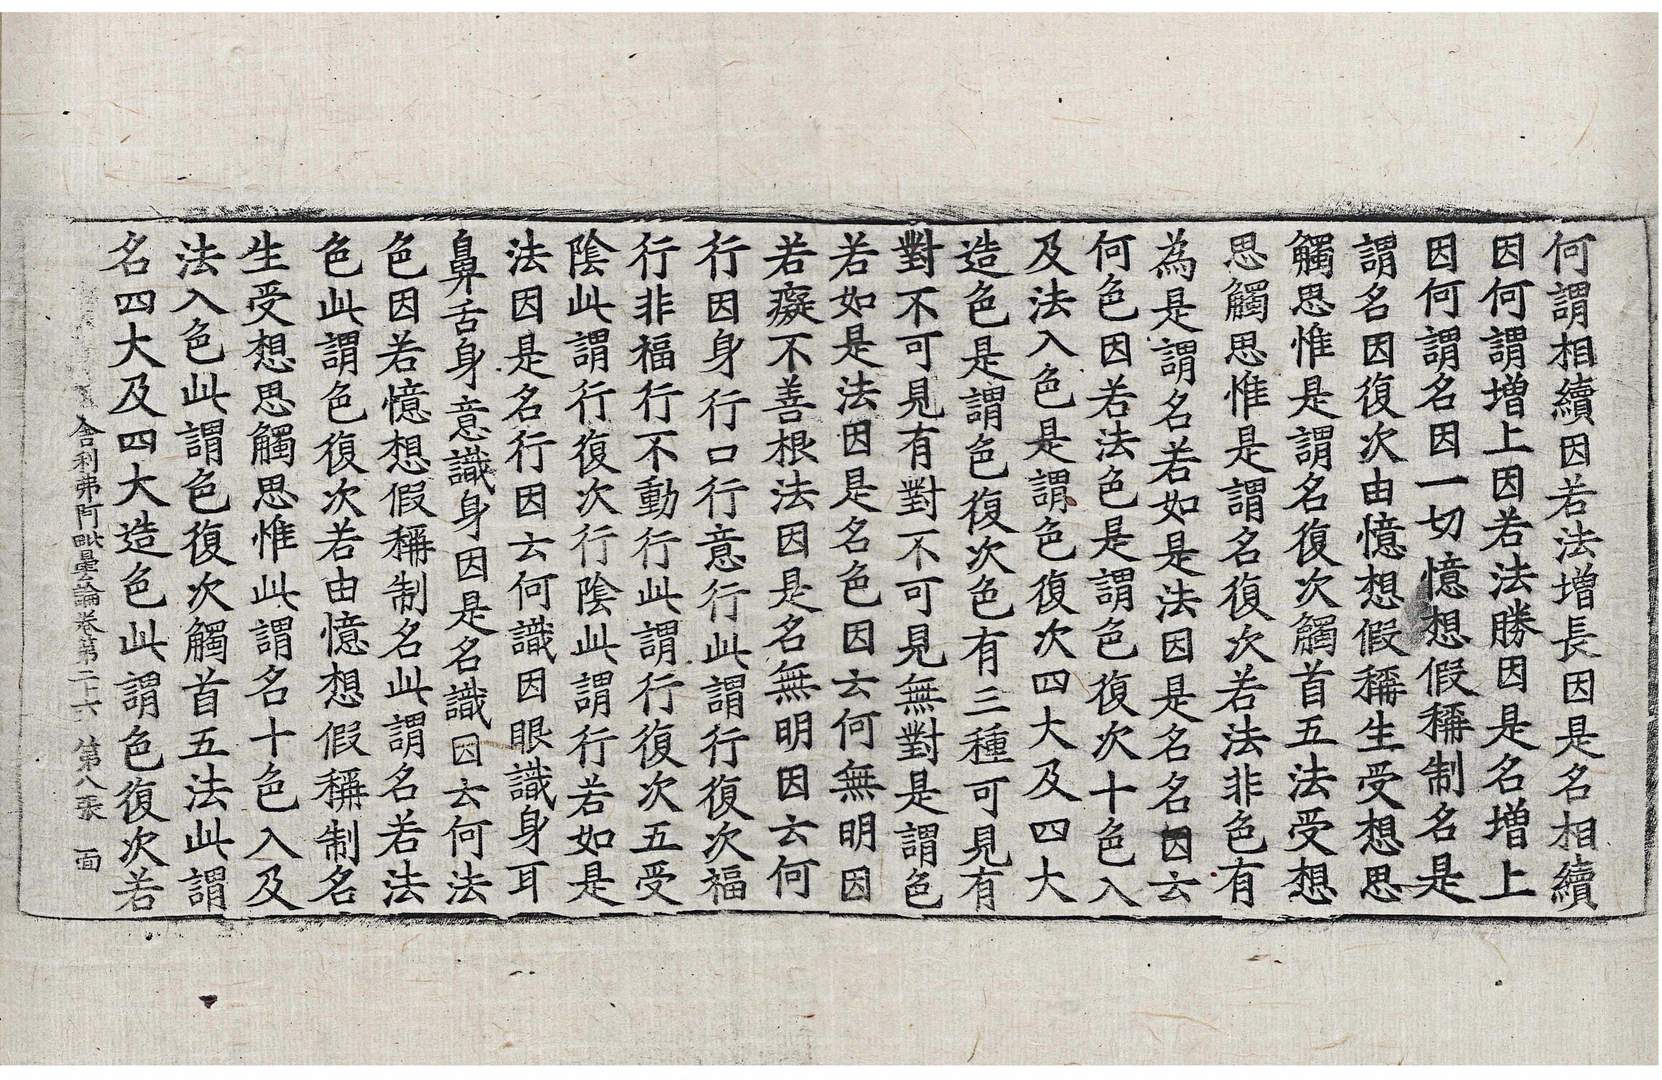 何謂相續因若法增長因是名相續
因何謂增上因若法勝因是名增上
因何謂名因一切憶想假稱制名是
謂名因復次由憶想假稱生受想思
觸思惟是謂名復次觸首五法受想
思觸思惟是謂名復次若法非色有
為是謂名若如是法因是名名因云
何色因若法色是謂色復次十色入
及法入色是謂色復次四大及四大
造色是謂色復次色有三種可見有
對不可見有對不可見無對是謂色
若如是法因是名色因云何無明因
若癡不善根法因是名無明因云何
行因身行口行意行此謂行復次福
行非福行不動行此謂行復次五受
陰此謂行復次行陰此謂行若如是
法因是名行因云何識因眼識身耳
鼻舌身意識身因是名識因云何法
色因若憶想假稱制名此謂名若法
色此謂色復次若由憶想假稱制名
生受想思觸思惟此謂名十色入及
法入色此謂色復次觸首五法此謂
名四大及四大造色此謂色復次若
舍利弗阿毗曇論卷第二十六 第八張 面